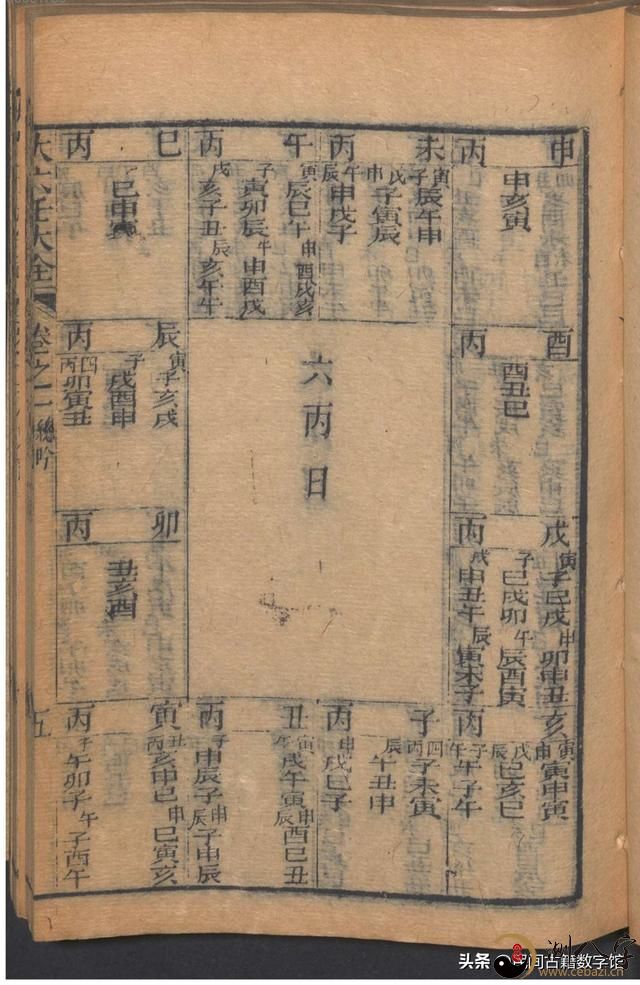 申丙
申亥寅
未丙
寅辰午申
申戌子寅辰
午辰申戌子
午丙
寅辰巳午申酉戌亥
子寅卯辰午申酉戌
戌亥子丑辰亥午午
巳丙
巳申寅
辰丙
寅子亥戌
子戌酉申
四丙卯寅丑
卯丙
丑亥酉
寅丙
丑丙亥申巳申巳寅亥
子午卯子午子酉午
丑丙
寅午戌午寅申辰酉巳丑
子申辰子申辰子申辰
子丙
四丙子未寅
辰午丑申
申戌巳子
亥丙
寅申寅申寅
戌辰巳亥巳
子午午子午
戌丙
寅子巳戌申卯申丑
子巳戌卯午辰酉寅
戌申丑午辰寅未子
酉丙
酉丑巳
六丙日
大六壬大全
卷之
總吟
五
头条 @民间古籍数字馆
测八字
www.cebazi.com